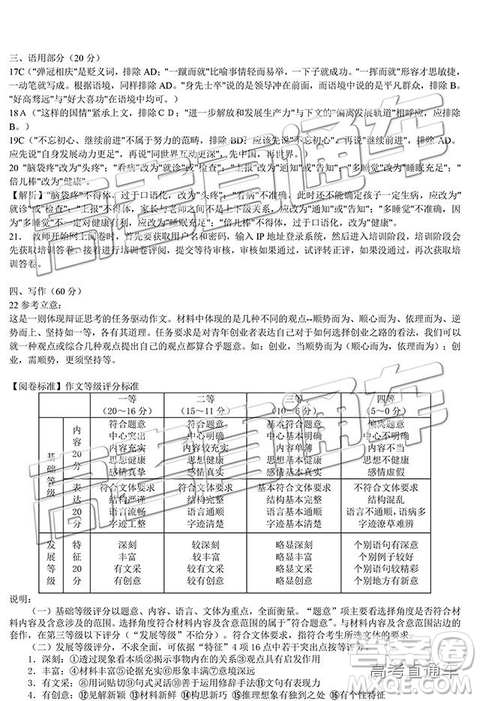 三、语用部分（20 分）
17C（"弹冠相庆"是贬义词，排除 AD；"一蹴而就"比喻事情轻而易举，一下子就能完成。"一挥而就"形容才思敏捷，
一动笔就写成。根据语境，同样排除 AD。"身先士卒"说的是领导冲在前面，而语境中说的是平凡群众，排除 B。
"好高骛远"与"好大喜功"在语境中均可。）
18A（"这样的国情"紧承上文，排除 C D；"进一步解放和发展生产力"与下文的"偏离发展轨道"相反相对，应排除
B。）
19C（"不忘初心、继续前进"不搭配，排除 B；应先说"不忘初心"，再说"
应先说"自身发展动力更足"，再说"国际
20 "脑袋疼"改为"头疼"；"看病"改为"就诊"或
倍儿棒"改为"健康"。
【解析】"脑袋疼"不得体，过于口语化，改为"头疼"；"看病"不准确，此前不能确定孩子一定生病，应改为"
就诊"或"检查"；"上报"不得体，家长与老师之间不是上下级关系，应改为"通知"或"告知"；"多睡觉"不准确，因
为"多睡觉"不一定对健康有利，应改为"睡眠充足"；"倍儿棒"过于口语化，改为"健康"。
21．教师开始网上阅卷时，首先要获取用户名和密码，输入 IP 地址登录系统，然后进入培训阶段，培训阶段会先
获取培训答卷，接着进行培训卷评阅，提交等待审核，审核如果通过，试评转正评，如果没通过，再次获取培
训答卷。
四、写作（60 分）
22 参考立意：
这是一则体现辩证思考的任务驱动作文。材料中体现的是几种不同的观点--顺势而为、顺心而为、因变而为、逆
势而上、坚持如一等，各有其道理。任务要求是对青年创业者表达自己对于创新、创业时机的看法，我们可以
就一种观点或综合几种观点提出自己的观点都算合乎题意。如：创业，当顺势而为；创业，需顺心而为；创
业，需顺势，更须坚持等。
【阅卷标准】作文等级评分标准
一等 二等 三等 四等
（20～16 分） （15～11 分） （10～6 分） （5～0 分）
基础等级
内容20分
符合题意 符合题意 基本符合题意 偏离题意
中心突出 中心明确 中心基本明确 中心不明确
内容充实 内容较充实 内容单薄 内容不当
思想健康 思想健康 思想基本健康 思想不健康
感情真挚 感情真实 感情基本真实 感情虚假
表达20分
符合文体要求 符合文体要求 基本符合文体要求 不符合文体要求
结构严谨 结构完整 结构基本完整 结构混乱
语言流畅 语言通顺 语言基本通顺 语言不通顺，语病多
字迹工整 字迹清楚 字迹基本清楚 字迹潦草难辨
发展等级
特征20分
深刻 较深刻 略显深刻 个别语句有深意
丰富 较丰富 略显丰富 个别例子较好
有文采 较有文采 略有文采 个别语句较精彩
有创新 较有创新 略显创新 个别地方有新意
说明：
（一）基础等级评分以题意、内容、语言、文体为重点，全面衡量。"题意"项主要看选择角度是否符合材
料内容及含意涉及的范围。选择角度符合材料内容及含意范围的属于"符合题意"，反之为偏离题意。对套作的
作文，在第三等级以下评分（"发展等级"不给分）。根据考生所选文体判断其是否符合文体的要求。
（二）发展等级评分，不求全面，可依据"特征"4 项 16 点中若干突出点按等评分：
1．深刻：①透过现象看本质②揭示事物内在的关系③观点具有启发作用
2．丰富：④材料丰富⑤论据充足⑥形象丰满⑦意境深远
3．有文采：⑧用词贴切⑨句式灵活⑩善于运用修辞手法⑪文句有表现力
4．有创意：⑫见解新颖 ⑬材料新鲜 ⑭构思新巧 ⑮推理想象有独到之处 ⑯有个性特征
高考直通车
高考直通车
答案圈